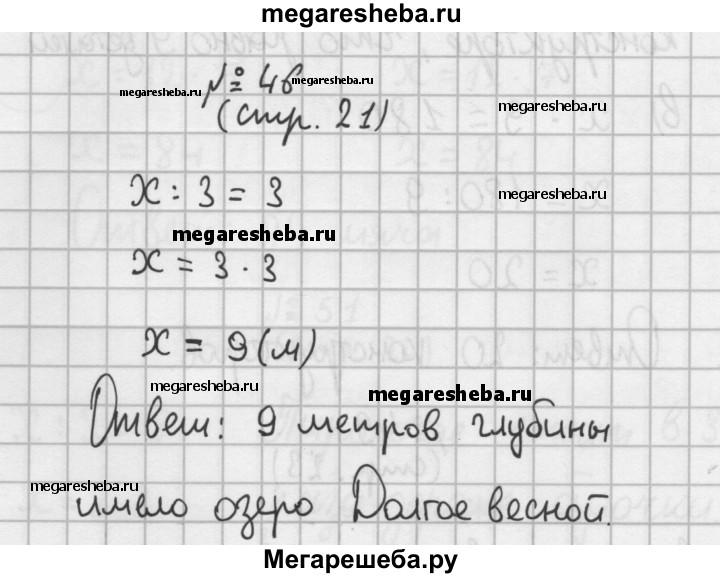 megaresheba.ru
№ 46
megaresheba.ru
megaresheba.ru
megaresheba.ru
(стр. 21)
x : 3 = 3
megaresheba.ru
megaresheba.ru
x = 3 · 3
x = 9 (м)
megaresheba.ru
megaresheba.ru
Ответ: 9 метров глубины
megaresheba.ru
имело озеро Долгое весной.
megaresheba.ru
Мегарешеба.ру